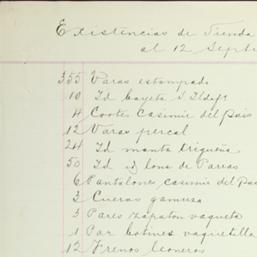 Existencias de Tienda
al 12 Septi
355 Varas estampado
10 Id bayeta S. Ildef
4 Cortes casimir del pais
12 Varas percal
24 Id manta trigueña
50 Id lona de Parras
6 Pantalones casimir del pai
3 Cueras gamusa
3 Pares zapaton vaqueta
1 Par botines vaquetilla
12 Frenos leoneros